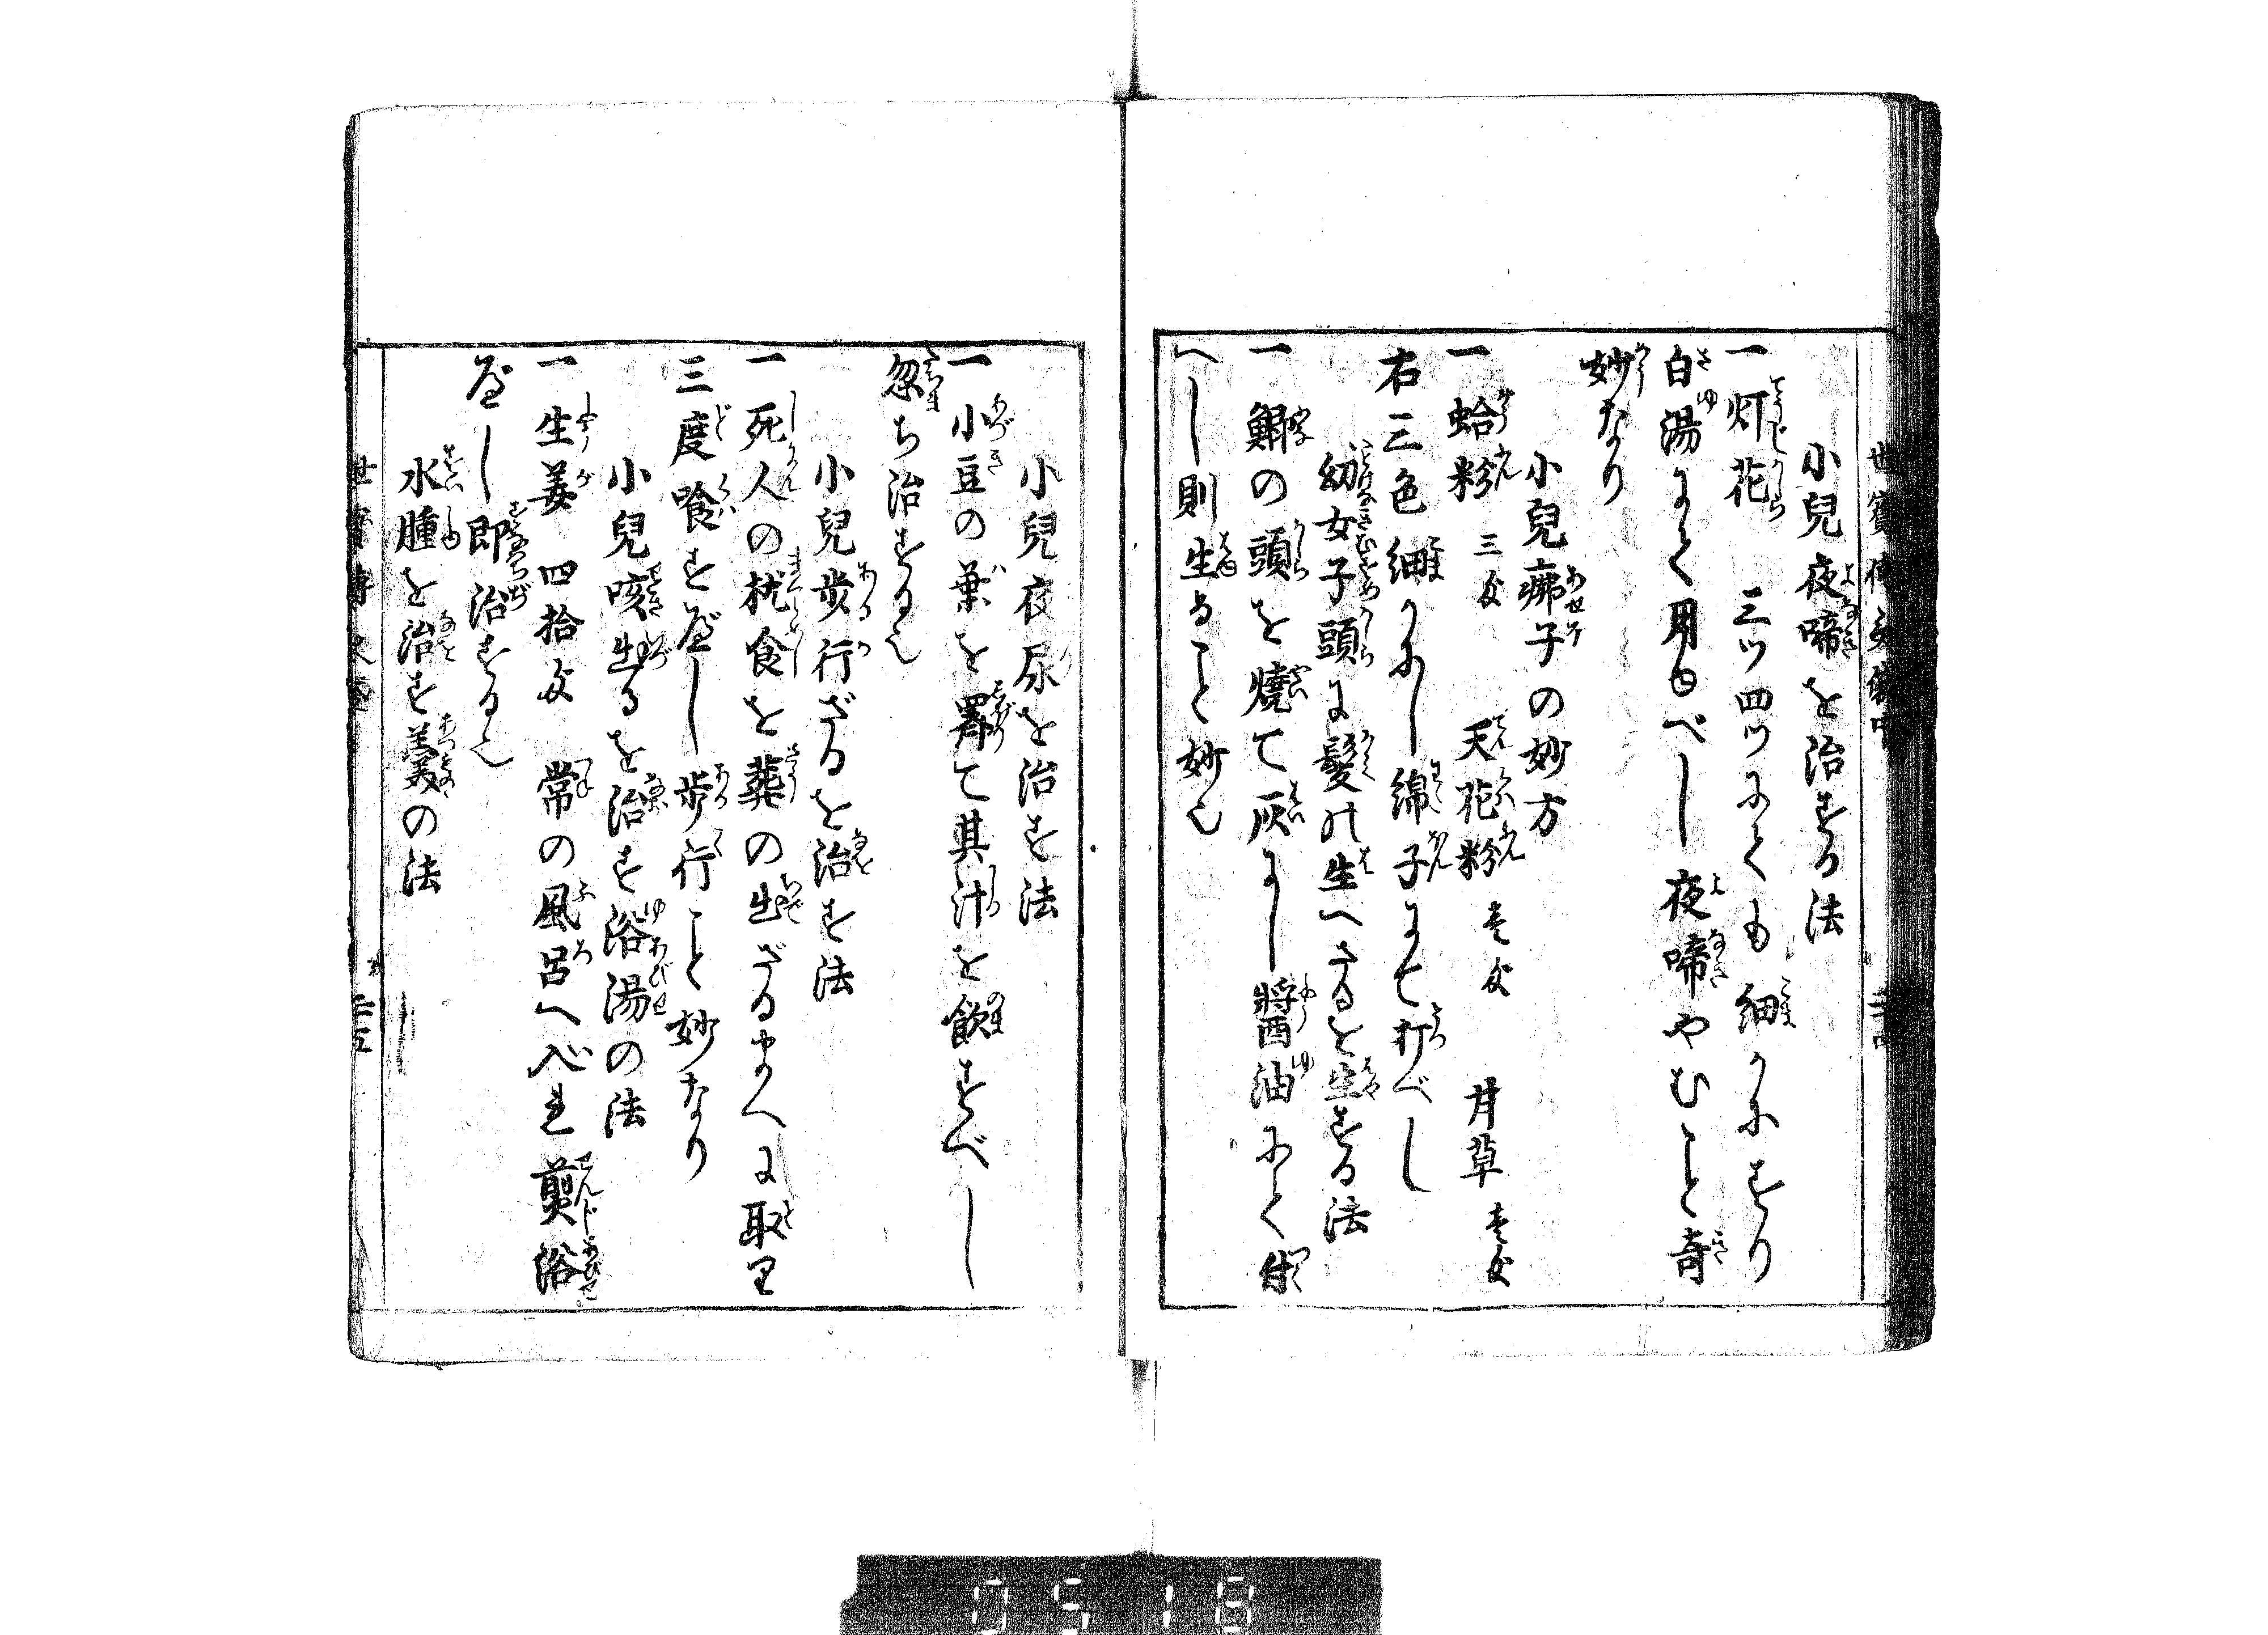 小兒夜啼を治する法
一灯花　三ツ四ツにても細かにすり
白湯にて用ゆべし夜啼やむこと奇
妙なり
小兒疿子の妙方
一蛤粉三匁　天花粉壱匁　甘草壱匁
右三色細かにし綿子にて打べし
幼女子頭に髪の生へざるを生する法
一鯽の頭を焼て灰にし醤油にて付
へし則生ること妙也
小兒夜尿を治す法
一小豆の葉を其汁を飲すべし
忽ち治する也
小兒歩行ざるを治す法
一死人の枕食を葬の出ざるまへに取り
三度喰すべし歩行こと妙なり
小兒咳出るを治す浴湯の法
一生姜四拾匁　常の風呂へ入れ煎じ浴
べし即治する也
水腫を治す羹の法